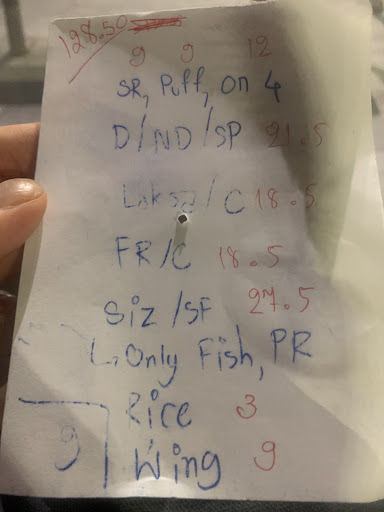 128.50
9 9 12
SR, Puff, on 4
D/ND/SP 21.5
Laksa/C 18.5
FR/C 18.5
Siz/SF 27.5
↳ Only Fish, PR
Rice 3
9 Wing 9